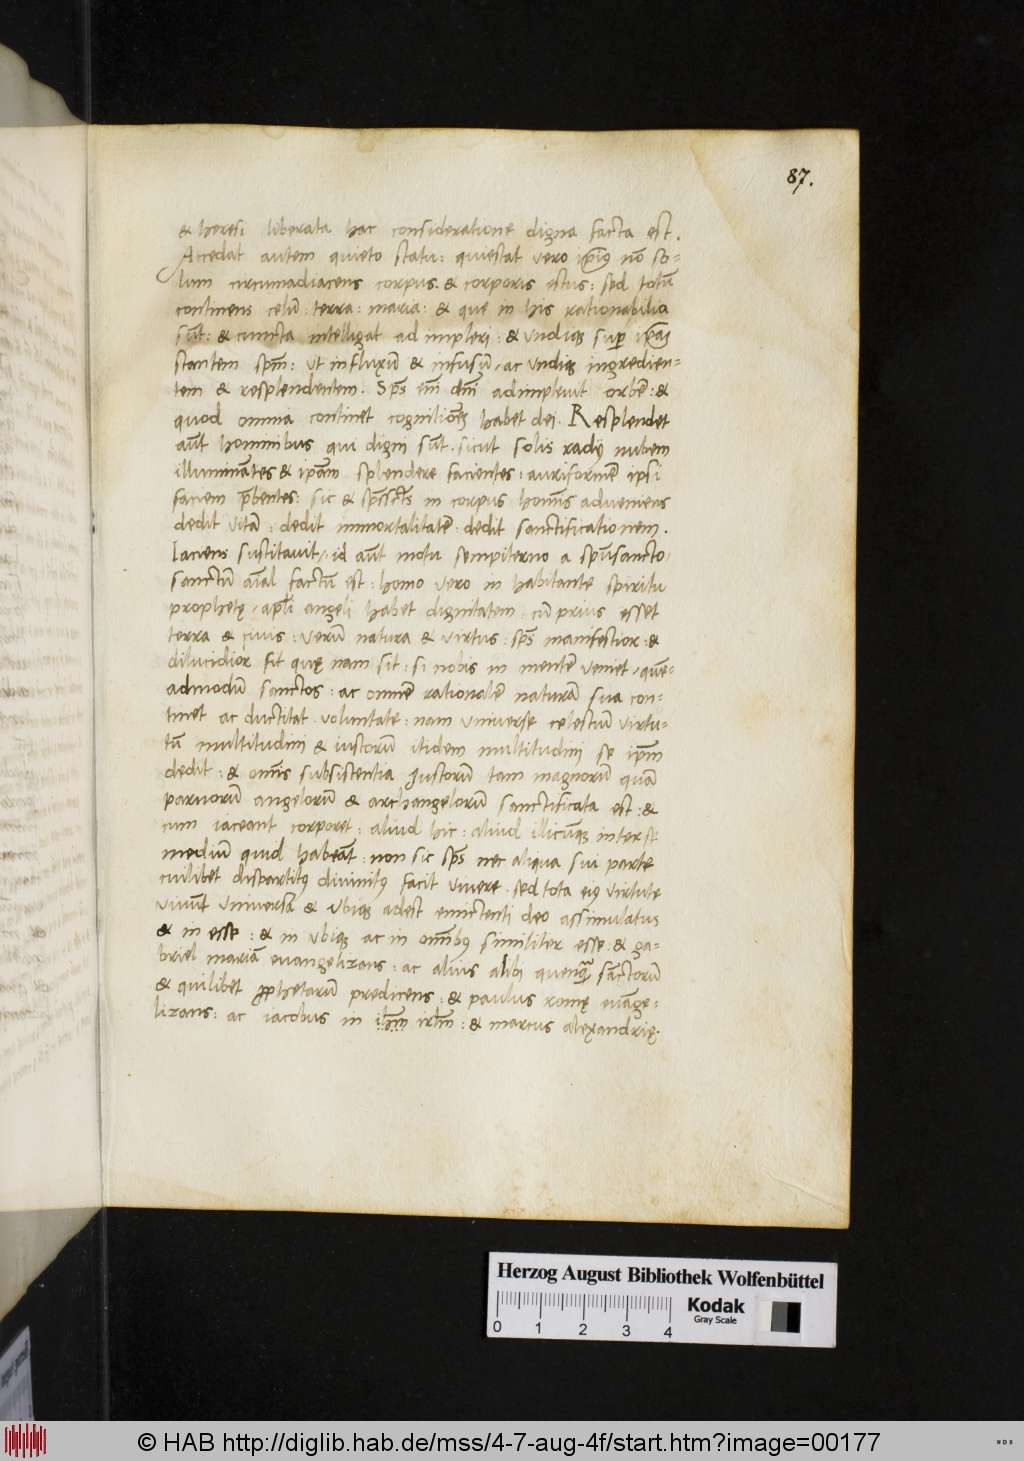 87.
& heresi liberata hac consideratione digna facta est.
Accedat autem quieto statu: quiescat vero ip̄ius nō so-
lum circumadiacens corpus. & corporis estus: sed totū
continens celū: terra: maria: & que in his rationabilia
sūt: & cuncta intelligat ad impleri: & undiq; super
stantem spm̄: ut influxū & infusū, ac undiq; ingredien-
tem & resplendentem. Sp̄s em̄ dn̄i adimplevit orbē: &
quod omnia continet cognitiōēs habet dei. Resplendet
aūt hominibus qui digni sūt. sicut solis radij nubem
illuminātes & ip̄am splendere facientes: auriformē ipsi
faciem p̄bentes: sic & in corpus homīs adveniens
dedit vitā: dedit immortalitatē: dedit sanctificationem.
Iaciens sustitavit, id aūt motu sempiterno a spūsancto,
sanctū aīal factū est: homo vero in habitante spiritu
prophetę, apl̄i angeli habet dignitatem: cū prius esset
terra & civis: verū natura & virtus: sp̄s manifestior: &
dilucidior fit quę nam sit: si nobis in mentē veniet, quē-
admodū sanctos: ac omnē rationalē naturā sua con-
tinet ac ductitat voluntate: nam universe celestiū virtu-
tū multitudini & iustorū itidem multitudini se ip̄m
dedit: & omīs subsistentia Justorū tam magnorū quā
parvorū angelorū & archangelorū sanctificata est: &
cum iaceant corpore: aliud hic: aliud illicūq; inter se
mediū quid habeāt: non sic sp̄s nec aliqua sui parte
cuilibet dispartitus divinitus facit vivere. sed tota eius virtute
vivūt universa & ubiq; adest emictenti deo assimulatus
& in esse: & in ubiq; ac in omībus similiter esse: & ga-
briel mariā evangelizans: ac alius alibi sāctorū
& quilibet prophetarum predicens: & paulus romę euāge-
lizans: ac iacobus in ih̄m irl̄m: & marcus alexandrię.
Herzog August Bibliothek Wolfenbüttel
0 1 2 3 4
Kodak
Gray Scale
© HAB http://diglib.hab.de/mss/4-7-aug-4f/start.htm?image=00177